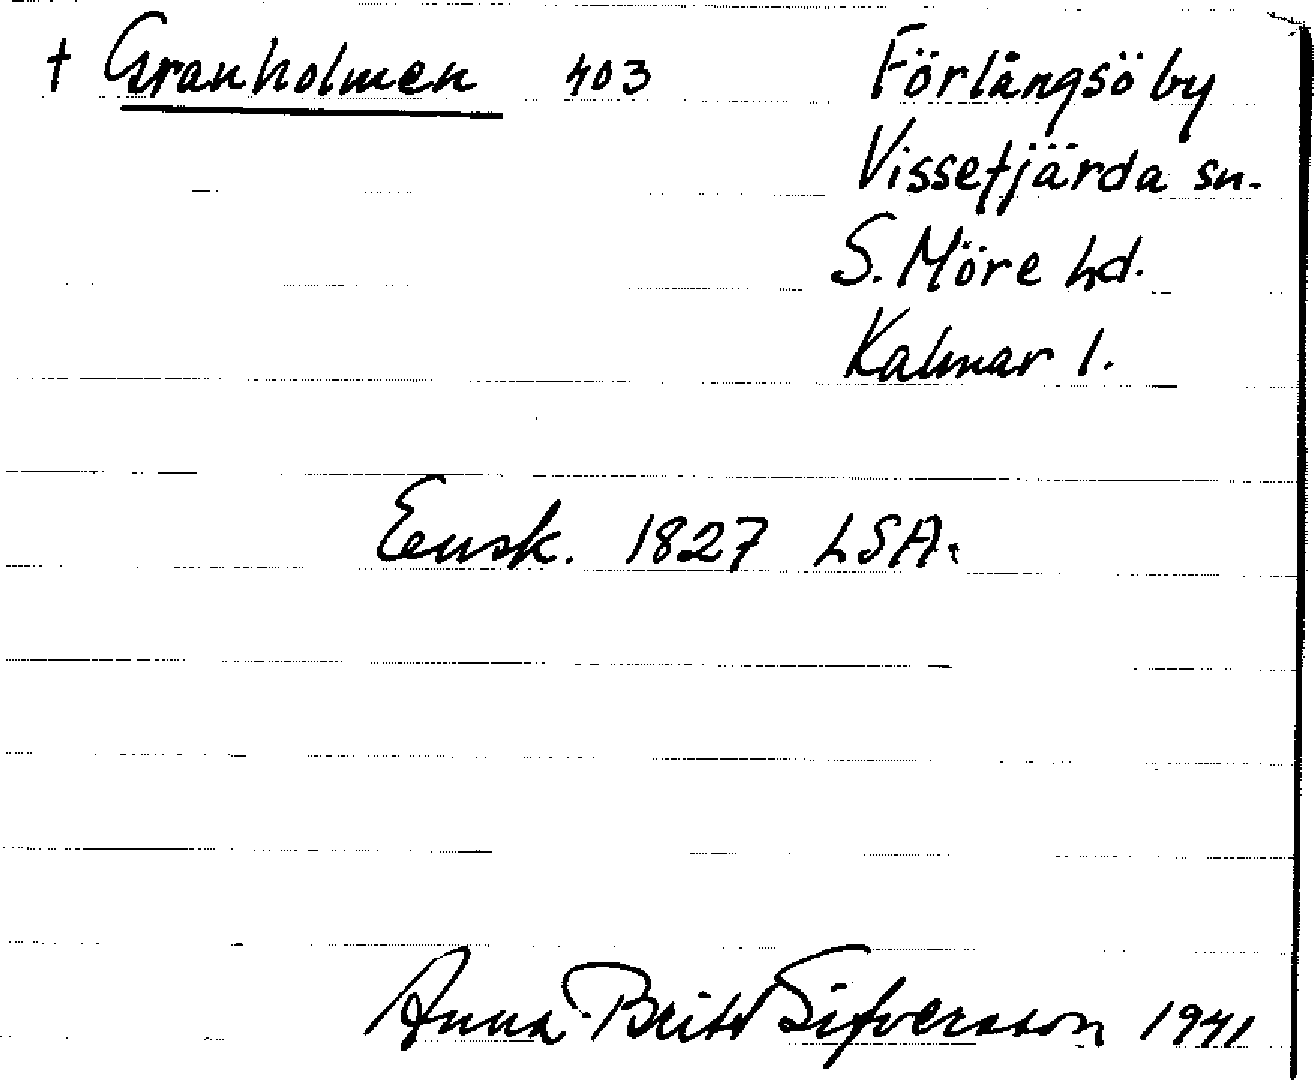 † Granholmen 403
Förlångsö by
Vissefjärda sn.
S. Möre hd.
Kalmar l.
Ensk. 1827 LSA.
Anna-Britt Sifversson 1941